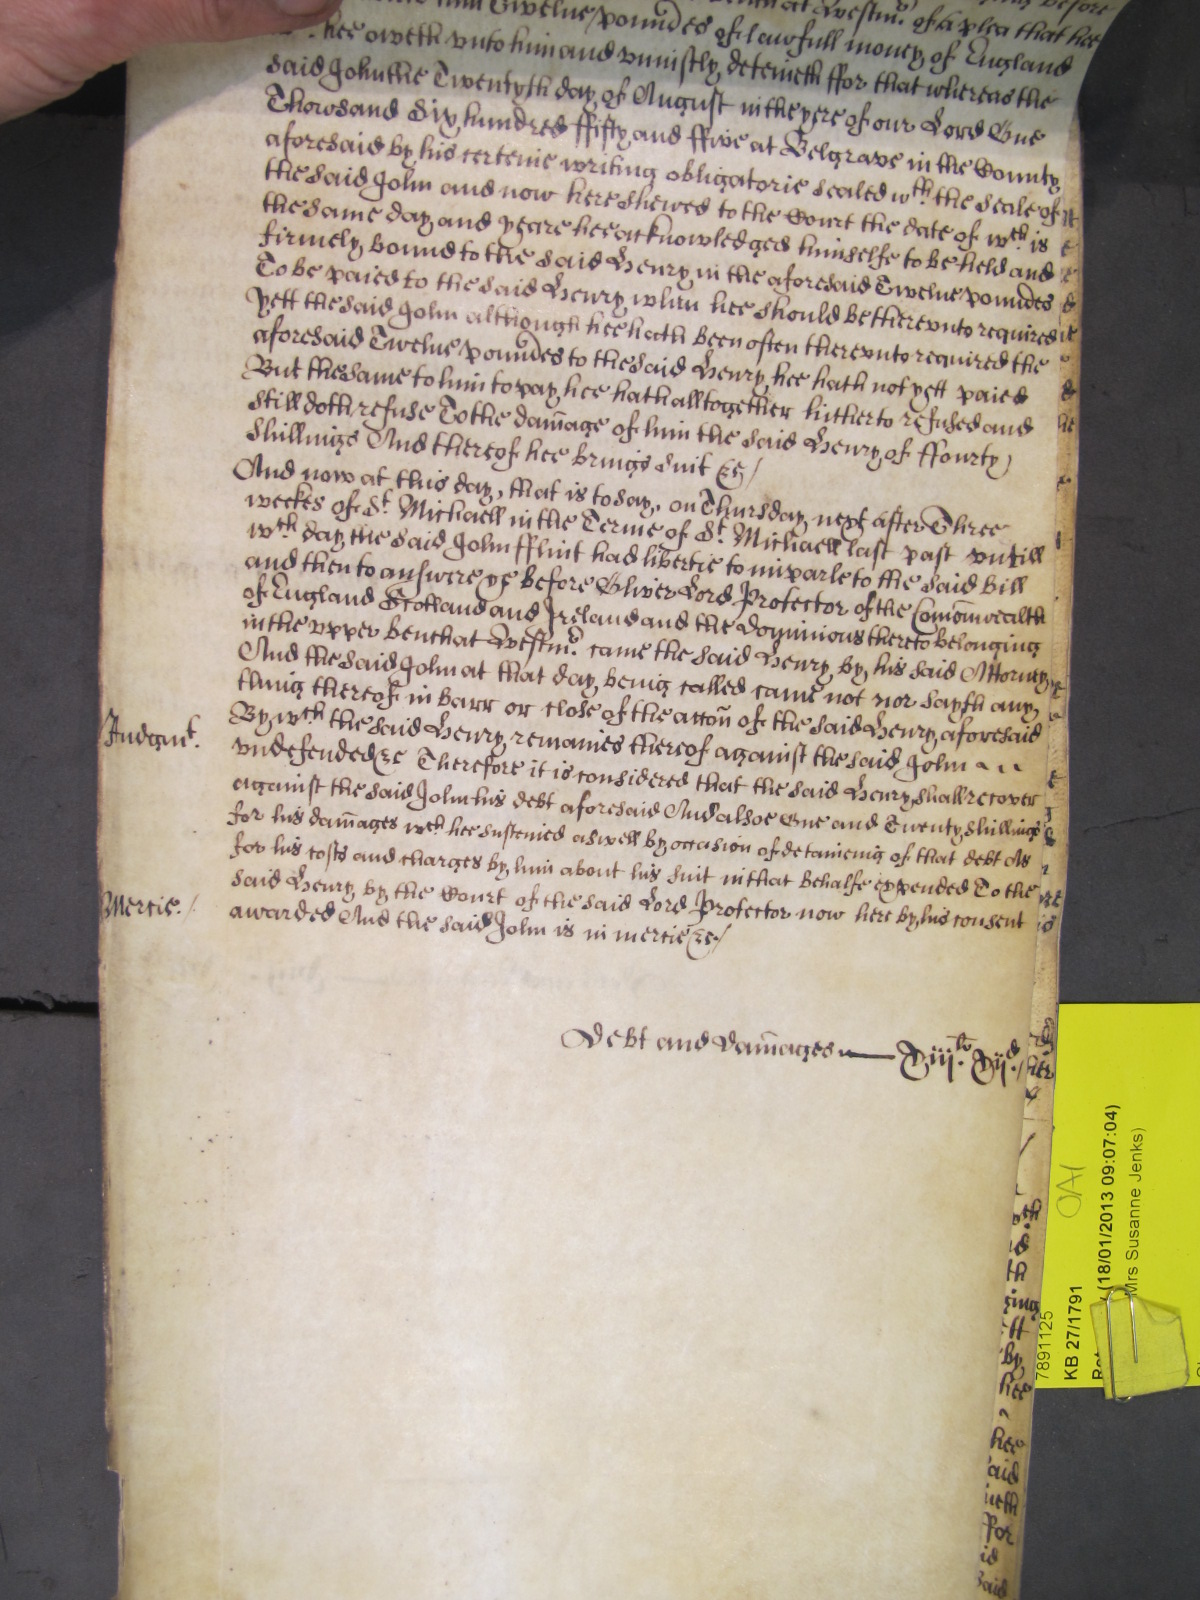 him Twelue poundes of lawfull money of England
hee oweth vnto him and vniustly deteineth ffor that whereas the
said John the Twentyth day of August in the yere of our Lord One
Thowsand Six hundred ffifty and ffive at Belgrave in the County
aforesaid by his certeine writing obligatorie sealed wth the seale of
the said John and now here shewed to the Court the date of wch is
the same day and yeare hee acknowledged himselfe to be held and
firmely bound to the said Henry in the aforesaid Twelue poundes
To be paied to the said Henry when hee should be therevnto required
yett the said John although hee hath been often therevnto required the
aforesaid Twelue poundes to the said Henry hee hath not yett paied
But the same to him to pay hee hath alltogether hitherto refused and
still doth refuse To the damage of him the said Henry of ffourty
shillings And thereof hee brings suit &c /
And now at this day, that is to say, on Thursday next after Three
weekes of St. Michaell in the Terme of St. Michaell last past vntill
wch day the said John fflint had libertie to imparle to the said Bill
and then to answere &c before Oliver Lord Protector of the Comonwealth
of England Scotland and Ireland and the dominions thereto belonging
in the vpper bench at Westmr. came the said Henry by his said Attorney
And the said John at that day being called came not nor sayth any
thing thereof in barr or close of the accon of the said Henry aforesaid
By wch the said Henry remaines thereof against the said John
Judgmt.
vndefended &c Therefore it is considered that the said Henry shall recover
against the said John his debt aforesaid And alsoe One and Twenty shillings
for his damages wch hee susteined aswell by occasion of deteineing of that debt As
for his costs and charges by him about his suit in that behalfe expended To the
said Henry by the Court of the said Lord Protector now here by his consent
Mercie. /
awarded And the said John is in mercie &c /
Debt and damages — xiij li. xij d. /
7891125
KB 27/1791
(18/01/2013 09:07:04)
Mrs Susanne Jenks)